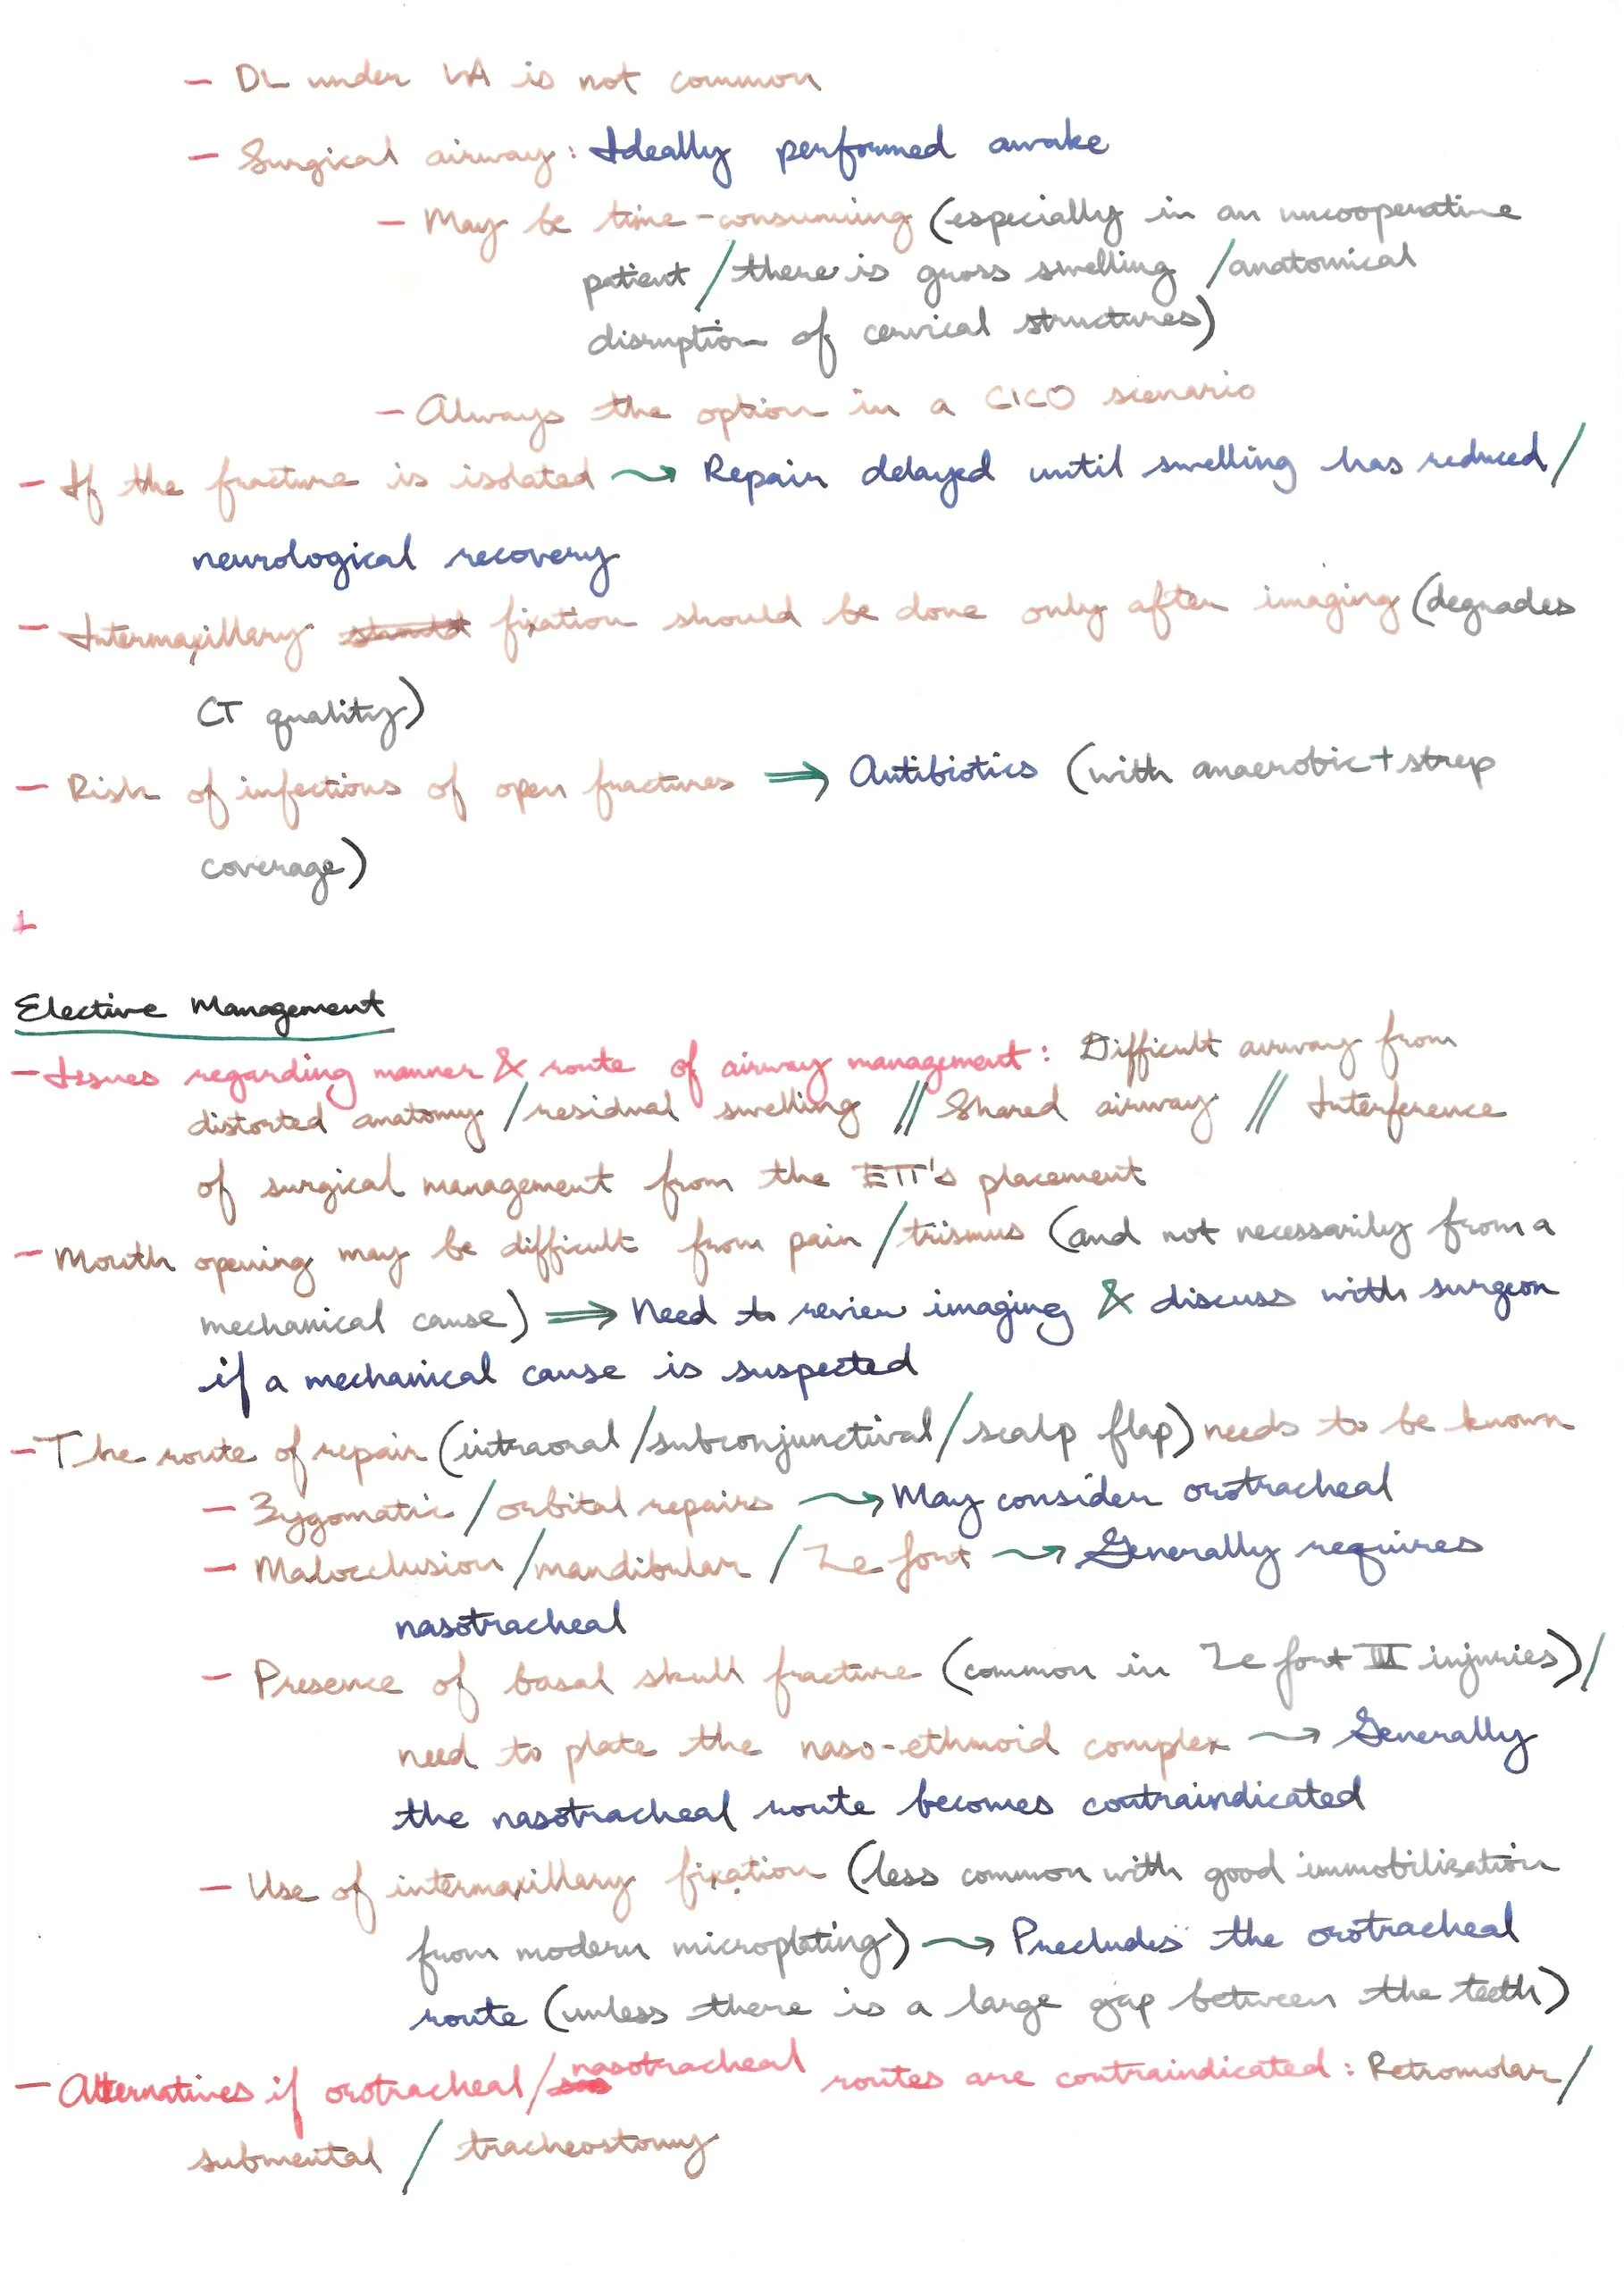 - DL under LA is not common
- Surgical airway: Ideally performed awake
- May be time-consuming (especially in an uncooperative
patient / there is gross swelling / anatomical
disruption of cervical structures)
- Always the option in a CICO scenario
- If the fracture is isolated → Repair delayed until swelling has reduced /
neurological recovery
- Intermaxillary fixation should be done only after imaging (degrades
CT quality)
- Risk of infections of open fractures ⇒ Antibiotics (with anaerobic + strep
coverage)
Elective Management
- Issues regarding manner & route of airway management: Difficult airway from
distorted anatomy / residual swelling // Shared airway // Interference
of surgical management from the ETT's placement
- Mouth opening may be difficult from pain / trismus (and not necessarily from a
mechanical cause) ⇒ Need to review imaging & discuss with surgeon
if a mechanical cause is suspected
- The route of repair (intraoral / subconjunctival / scalp flap) needs to be known
- Zygomatic / orbital repairs → May consider orotracheal
- Malocclusion / mandibular / Le fort → Generally requires
nasotracheal
- Presence of basal skull fracture (common in Le fort III injuries) /
need to plate the naso-ethmoid complex → Generally
the nasotracheal route becomes contraindicated
- Use of intermaxillary fixation (less common with good immobilisation
from modern microplating) → Precludes the orotracheal
route (unless there is a large gap between the teeth)
- Alternatives if orotracheal / nasotracheal routes are contraindicated: Retromolar /
submental / tracheostomy